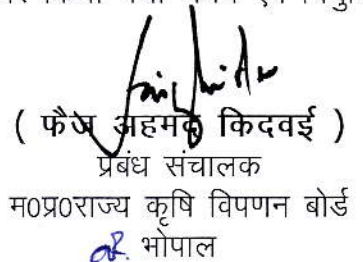 ( फैज अहमद किदवई )
प्रबंध संचालक
म0प्र0राज्य कृषि विपणन बोर्ड
भोपाल